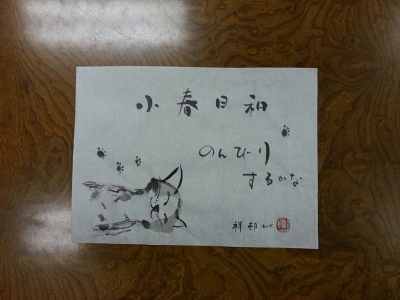 小春日和
のんびり
するかな
祥邨